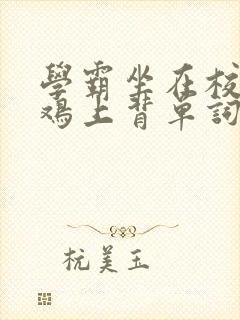 學霸坐在校
鸡上背單詞
杭美玉